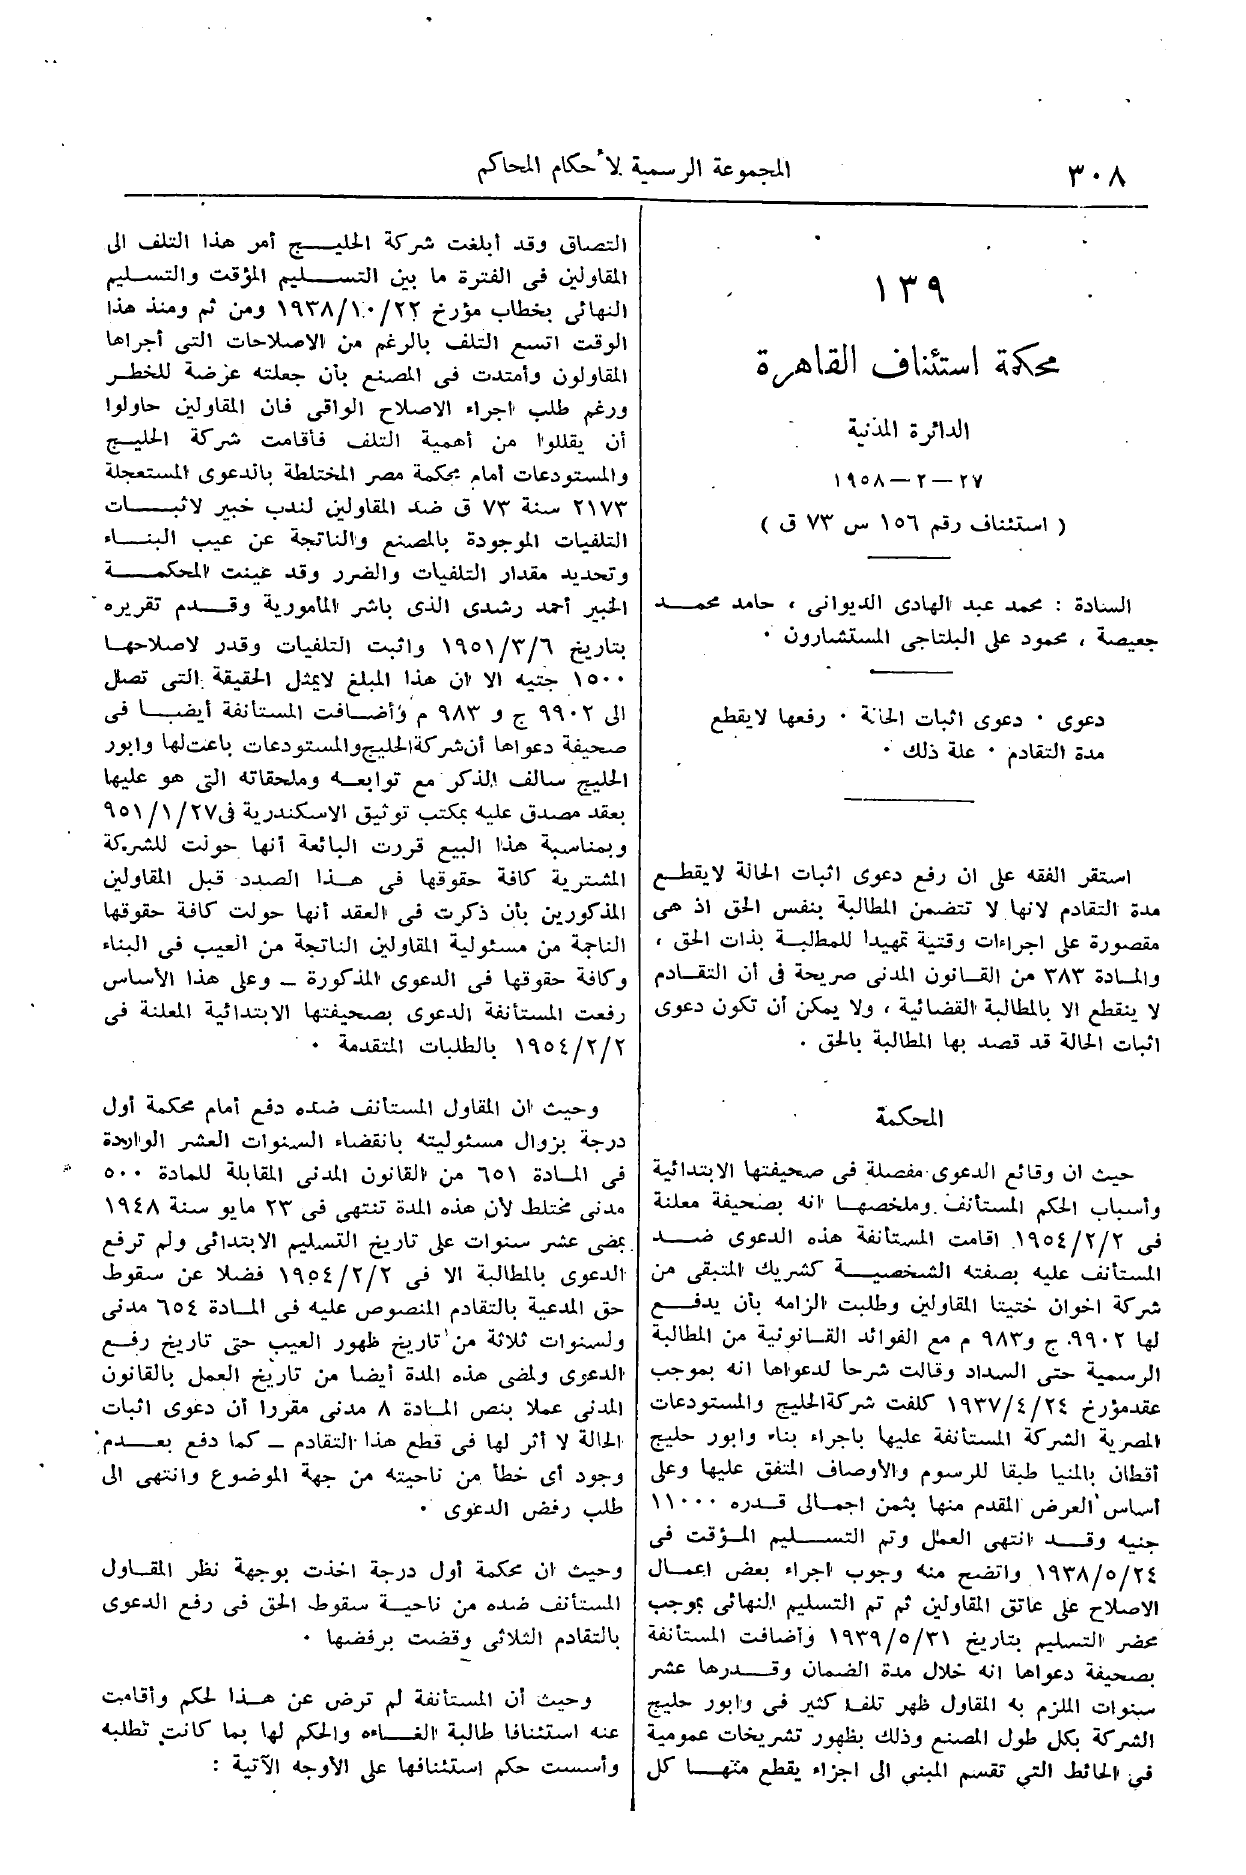 ٣٠٨
المجموعة الرسمية لأحكام المحاكم
١٣٩
محكمة استئناف القاهرة
الدائرة المدنية
٢٧ — ٢ — ١٩٥٨
( استئناف رقم ١٥٦ س ٧٣ ق )
السادة : محمد عبد الهادى الديوانى ، حامد محمد
جعيصة ، محمود على البلتاجى المستشارون ٠
دعوى ٠ دعوى اثبات الحالة ٠ رفعها لايقطع
مدة التقادم ٠ علة ذلك ٠
استقر الفقه على ان رفع دعوى اثبات الحالة لايقطع
مدة التقادم لانها لا تتضمن المطالبة بنفس الحق اذ هى
مقصورة على اجراءات وقتية تمهيدا للمطالبة بذات الحق ،
والمادة ٣٨٣ من القانون المدنى صريحة فى أن التقادم
لا ينقطع الا بالمطالبة القضائية ، ولا يمكن أن تكون دعوى
اثبات الحالة قد قصد بها المطالبة بالحق ٠
المحكمة
حيث ان وقائع الدعوى مفصلة فى صحيفتها الابتدائية
وأسباب الحكم المستأنف وملخصها انه بصحيفة معلنة
فى ١٩٥٤/٢/٢ اقامت المستأنفة هذه الدعوى ضد
المستأنف عليه بصفته الشخصية كشريك المتبقى من
شركة اخوان ختيتا المقاولين وطلبت الزامه بأن يدفع
لها ٩٩٠٢ ج و٩٨٣ م مع الفوائد القانونية من المطالبة
الرسمية حتى السداد وقالت شرحا لدعواها انه بموجب
عقدمؤرخ ١٩٣٧/٤/٢٤ كلفت شركةالخليج والمستودعات
المصرية الشركة المستأنفة عليها باجراء بناء وابور حليج
أقطان بالمنيا طبقا للرسوم والأوصاف المتفق عليها وعلى
أساس العرض المقدم منها بثمن اجمالى قدره ١١٠٠٠
جنيه وقد انتهى العمل وتم التسليم المؤقت فى
١٩٣٨/٥/٢٤ واتضح منه وجوب اجراء بعض اعمال
الاصلاح على عاتق المقاولين ثم تم التسليم النهائى بموجب
محضر التسليم بتاريخ ١٩٣٩/٥/٣١ وأضافت المستأنفة
بصحيفة دعواها انه خلال مدة الضمان وقدرها عشر
سنوات الملزم به المقاول ظهر تلف كثير فى وابور حليج
الشركة بكل طول المصنع وذلك بظهور تشريخات عمومية
فى الحائط التي تقسم المبنى الى اجزاء يقطع منها كل
التصاق وقد أبلغت شركة الخليج أمر هذا التلف الى
المقاولين فى الفترة ما بين التسليم المؤقت والتسليم
النهائى بخطاب مؤرخ ١٩٣٨/١٠/٢٢ ومن ثم ومنذ هذا
الوقت اتسع التلف بالرغم من الاصلاحات التى أجراها
المقاولون وأمتدت فى المصنع بأن جعلته عرضة للخطر
ورغم طلب اجراء الاصلاح الواقى فان المقاولين حاولوا
أن يقللوا من أهمية التلف فأقامت شركة الخليج
والمستودعات أمام محكمة مصر المختلطة باندعوى المستعجلة
٢١٧٣ سنة ٧٣ ق ضد المقاولين لندب خبير لاثبات
التلفيات الموجودة بالمصنع والناتجة عن عيب البناء
وتحديد مقدار التلفيات والضرر وقد عينت المحكمة
الخبير أحمد رشدى الذى باشر المأمورية وقدم تقريره
بتاريخ ١٩٥١/٣/٦ واثبت التلفيات وقدر لاصلاحها
١٥٠٠ جنيه الا ان هذا المبلغ لايمثل الحقيقة التى تصل
الى ٩٩٠٢ ج و ٩٨٣ م وأضافت المستأنفة أيضا فى
صحيفة دعواها أن شركةالخليج والمستودعات باعت لها وابور
الخليج سالف الذكر مع توابعه وملحقاته التى هو عليها
بعقد مصدق عليه بمكتب توثيق الاسكندرية فى٩٥١/١/٢٧
وبمناسبة هذا البيع قررت البائعة أنها حولت للشركة
المشترية كافة حقوقها فى هذا الصدد قبل المقاولين
المذكورين بأن ذكرت فى العقد أنها حولت كافة حقوقها
الناجمة من مسئولية المقاولين الناتجة من العيب فى البناء
وكافة حقوقها فى الدعوى المذكورة – وعلى هذا الأساس
رفعت المستأنفة الدعوى بصحيفتها الابتدائية المعلنة فى
١٩٥٤/٢/٢ بالطلبات المتقدمة ٠
وحيث ان المقاول المستأنف ضده دفع أمام محكمة أول
درجة بزوال مسئوليته بانقضاء السنوات العشر الواردة
فى المادة ٦٥١ من القانون المدنى المقابلة للمادة ٥٠٠
مدنى مختلط لأن هذه المدة تنتهى فى ٢٣ مايو سنة ١٩٤٨
بمضى عشر سنوات على تاريخ التسليم الابتدائى ولم ترفع
الدعوى بالمطالبة الا فى ١٩٥٤/٢/٢ فضلا عن سقوط
حق المدعية بالتقادم المنصوص عليه فى المادة ٦٥٤ مدنى
ولسنوات ثلاثة من تاريخ ظهور العيب حتى تاريخ رفع
الدعوى ولمضى هذه المدة أيضا من تاريخ العمل بالقانون
المدنى عملا بنص المادة ٨ مدنى مقررا أن دعوى اثبات
الحالة لا أثر لها فى قطع هذا التقادم – كما دفع بعدم
وجود أى خطأ من ناحيته من جهة الموضوع وانتهى الى
طلب رفض الدعوى ٠
وحيث ان محكمة أول درجة اخذت بوجهة نظر المقاول
المستأنف ضده من ناحية سقوط الحق فى رفع الدعوى
بالتقادم الثلاثى وقضت برفضها ٠
وحيث أن المستأنفة لم ترض عن هذا لحكم وأقامت
عنه استئنافا طالبة الغاءه والحكم لها بما كانت تطلبه
وأسست حكم استئنافها على الأوجه الآتية :